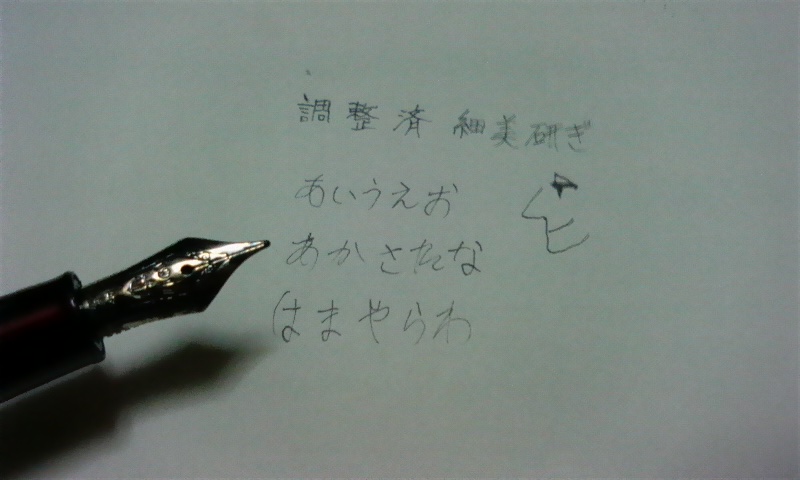 調整済 細美研ぎ
あいうえお
あかさたな
はまやらわ